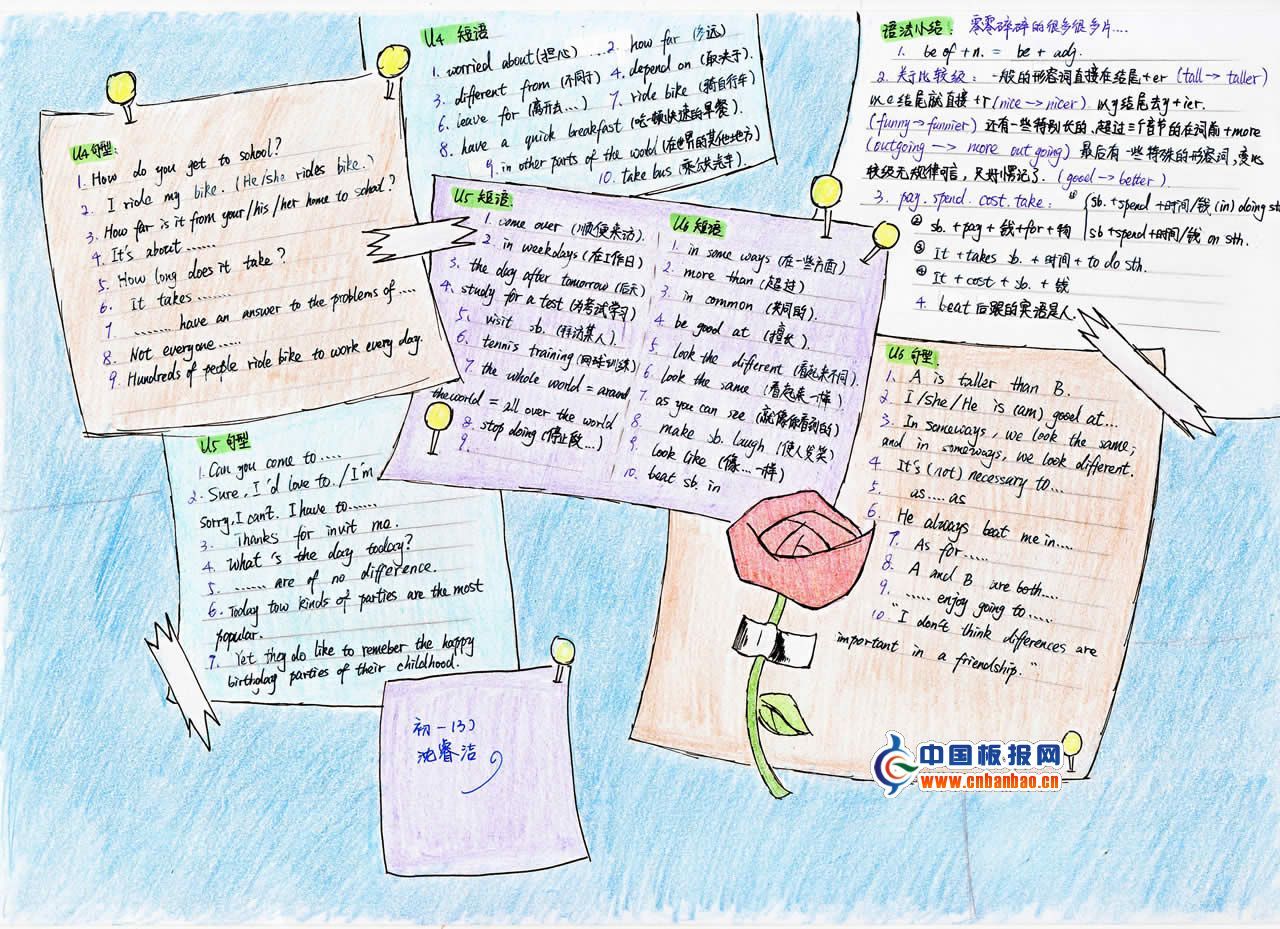 U4 句型:
1. How do you get to school?
2. I ride my bike. (He/she rides bike.)
3. How far is it from your/his/her home to school?
4. It's about ......
5. How long does it take?
6. It takes ........
7. ........ have an answer to the problems of ....
8. Not everyone .....
9. Hundreds of people ride bike to work every day.
U4 短语
1. worried about (担心) ....2. how far (多远)
3. different from (不同于) 4. depend on (取决于).
6. leave for (离开去...) 7. ride bike (骑自行车)
8. have a quick breakfast (吃一顿快速的早餐).
9. in other parts of the world (在世界的其他地方)
10. take bus (乘公共汽车).
语法小结: 零零碎碎的很多很多片....
1. be of + n. = be + adj.
2. 关于比较级: 一般的形容词直接在结尾+er (tall → taller)
以e结尾就直接+r (nice → nicer) 以y结尾去y+ier.
(funny → funnier) 还有一些特别长的,超过三个音节的在词前+more
(outgoing → more outgoing) 最后有一些特殊的形容词,变比
较级无规律可言,只好慢记了. (good → better).
3. pay. spend. cost. take: ① sb. + spend + 时间/钱 (in) doing st
sb + spend + 时间/钱 on sth.
② sb. + pay + 钱 + for + 物
③ It + takes sb. + 时间 + to do sth.
④ It + cost + sb. + 钱
4. beat 后跟的宾语是人.
U5 短语.
1. come over (顺便来访).
2. in weekdays (在工作日)
3. the day after tomorrow (后天)
4. study for a test (为考试学习)
5. visit sb. (拜访某人).
6. tennis training (网球训练)
7. the whole world = around
the world = all over the world
8. stop doing (停止做...)
9.
U6 短语
1. in some ways (在一些方面)
2. more than (超过)
3. in common (共同的).
4. be good at (擅长).
5. look the different (看起来不同).
6. look the same (看起来一样).
7. as you can see (就像你看到的)
8. make sb. laugh (使人发笑)
9. look like (像....一样)
10. beat sb. in
U5 句型
1. Can you come to ....
2. Sure, I'd love to. / I'm
sorry, I can't. I have to ......
3. Thanks for invit me.
4. What's the day today?
5. ...... are of no difference.
6. Today tow kinds of parties are the most
popular.
7. Yet they do like to remeber the happy
birthday parties of their childhood.
U6 句型
1. A is taller than B.
2. I/she/He is (am) good at...
3. In someways, we look the same;
and in someways, we look different.
4. It's (not) necessary to...
5. as .... as
6. He always beat me in....
7. As for .....
8. A and B are both....
9. ..... enjoy going to .....
10. "I don't think differences are
important in a friendship."
初一(3)
沈睿洁
中国板报网
www.cnbanbao.cn